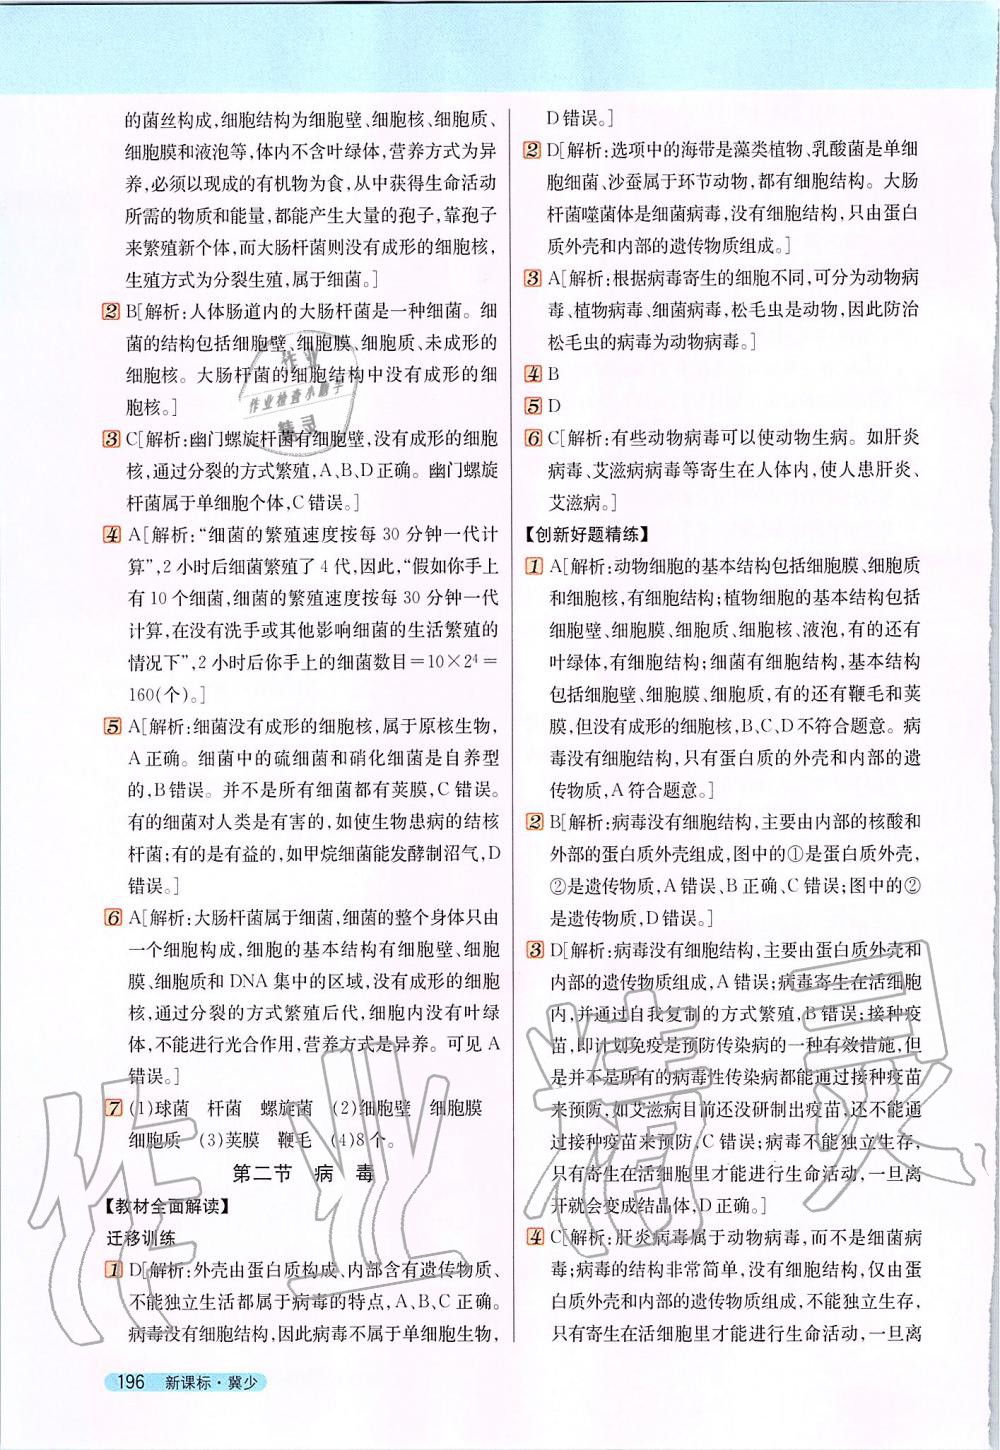 的菌丝构成,细胞结构为细胞壁、细胞核、细胞质、
细胞膜和液泡等,体内不含叶绿体,营养方式为异
养,必须以现成的有机物为食,从中获得生命活动
所需的物质和能量,都能产生大量的孢子,靠孢子
来繁殖新个体,而大肠杆菌则没有成形的细胞核,
生殖方式为分裂生殖,属于细菌。]
2 B[解析:人体肠道内的大肠杆菌是一种细菌。细
菌的结构包括细胞壁、细胞膜、细胞质、未成形的
细胞核。大肠杆菌的细胞结构中没有成形的细
胞核。]
3 C[解析:幽门螺旋杆菌有细胞壁,没有成形的细胞
核,通过分裂的方式繁殖,A、B、D正确。幽门螺旋
杆菌属于单细胞个体,C错误。]
4 A[解析:“细菌的繁殖速度按每 30 分钟一代计
算”,2小时后细菌繁殖了4代,因此,“假如你手上
有 10 个细菌,细菌的繁殖速度按每 30 分钟一代
计算,在没有洗手或其他影响细菌的生活繁殖的
情况下”,2小时后你手上的细菌数目=10×2⁴=
160(个)。]
5 A[解析:细菌没有成形的细胞核,属于原核生物,
A正确。细菌中的硫细菌和硝化细菌是自养型
的,B错误。并不是所有细菌都有荚膜,C错误。
有的细菌对人类是有害的,如使生物患病的结核
杆菌;有的是有益的,如甲烷细菌能发酵制沼气,D
错误。]
6 A[解析:大肠杆菌属于细菌,细菌的整个身体只由
一个细胞构成,细胞的基本结构有细胞壁、细胞
膜、细胞质和 DNA 集中的区域,没有成形的细胞
核,通过分裂的方式繁殖后代,细胞内没有叶绿
体,不能进行光合作用,营养方式是异养。可见 A
错误。]
7 (1)球菌 杆菌 螺旋菌 (2)细胞壁 细胞膜
细胞质 (3)荚膜 鞭毛 (4)8个。
第二节 病 毒
【教材全面解读】
迁移训练
1 D[解析:外壳由蛋白质构成、内部含有遗传物质、
不能独立生活都属于病毒的特点,A、B、C正确。
病毒没有细胞结构,因此病毒不属于单细胞生物,
D错误。]
2 D[解析:选项中的海带是藻类植物、乳酸菌是单细
胞细菌、沙蚕属于环节动物,都有细胞结构。大肠
杆菌噬菌体是细菌病毒,没有细胞结构,只由蛋白
质外壳和内部的遗传物质组成。]
3 A[解析:根据病毒寄生的细胞不同,可分为动物病
毒、植物病毒、细菌病毒,松毛虫是动物,因此防治
松毛虫的病毒为动物病毒。]
4 B
5 D
6 C[解析:有些动物病毒可以使动物生病。如肝炎
病毒、艾滋病病毒等寄生在人体内,使人患肝炎、
艾滋病。]
【创新好题精练】
1 A[解析:动物细胞的基本结构包括细胞膜、细胞质
和细胞核,有细胞结构;植物细胞的基本结构包括
细胞壁、细胞膜、细胞质、细胞核、液泡,有的还有
叶绿体,有细胞结构;细菌有细胞结构,基本结构
包括细胞壁、细胞膜、细胞质,有的还有鞭毛和荚
膜,但没有成形的细胞核,B、C、D不符合题意。病
毒没有细胞结构,只有蛋白质的外壳和内部的遗
传物质,A符合题意。]
2 B[解析:病毒没有细胞结构,主要由内部的核酸和
外部的蛋白质外壳组成,图中的①是蛋白质外壳,
②是遗传物质,A错误、B正确、C错误;图中的②
是遗传物质,D错误。]
3 D[解析:病毒没有细胞结构,主要由蛋白质外壳和
内部的遗传物质组成,A错误;病毒寄生在活细胞
内,并通过自我复制的方式繁殖,B错误;接种疫
苗,即计划免疫是预防传染病的一种有效措施,但
并不是所有的病毒性传染病都能通过接种疫苗
来预防,如艾滋病目前还没研制出疫苗,还不能通
过接种疫苗来预防,C错误;病毒不能独立生存,
只有寄生在活细胞里才能进行生命活动,一旦离
开就会变成结晶体,D正确。]
4 C[解析:肝炎病毒属于动物病毒,而不是细菌病
毒;病毒的结构非常简单,没有细胞结构,仅由蛋
白质外壳和内部的遗传物质组成,不能独立生存,
只有寄生在活细胞里才能进行生命活动,一旦离
196 新课标·冀少
作业
作业检查小助手
精灵
作业精灵